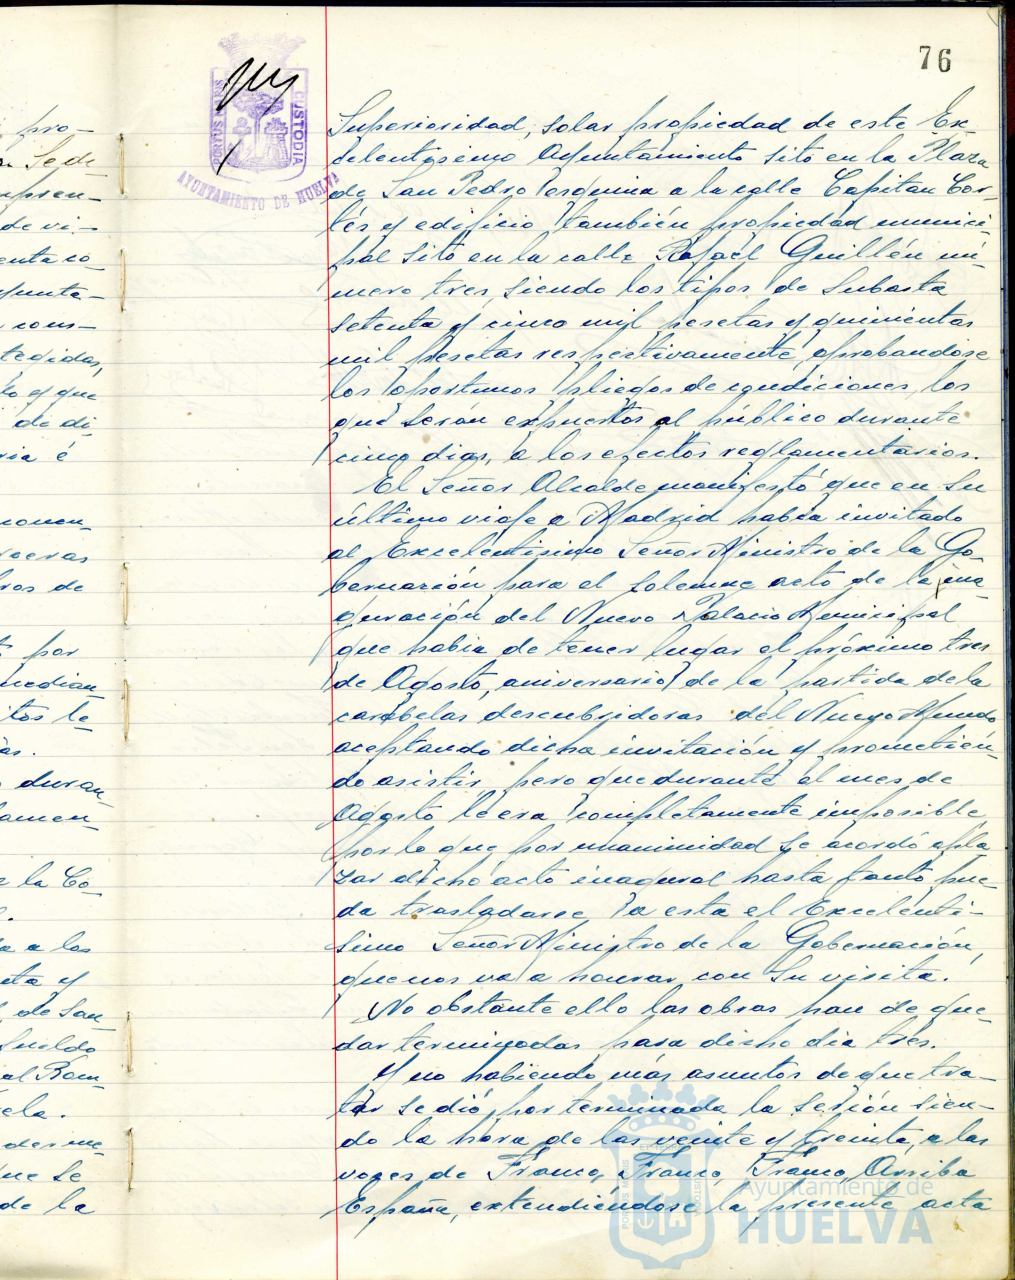 76
PORTUS MARIS
CUSTODIA
AYUNTAMIENTO DE HUELVA
pro-
Sede
mpren-
de vi-
enta co-
yunta-
cons-
tegidas,
to y que
de di-
ria é
nonen-
ros de
por
median-
itos te
as.
duran-
amen-
e la Co-
a a los
ata y
de San-
Sueldo
al Rom-
ela.
der me-
ue se
de la
Superioridad, solar propiedad de este Ex-
selentisimo Ayuntamiento sito en la Plaza
de San Pedro esquina a la calle Capitan Cor-
tés y edificio, también propiedad munici-
pal sito en la calle Rafael Guillén nú-
mero tres, siendo los tipos de subasta
setenta y cinco mil pesetas y quinientas
mil pesetas respectivamente, aprobandose
los oportunos pliegos de condiciones, los
que serán expuestos al público durante
cinco dias, a los efectos reglamentarios.
El Señor Alcalde manifestó que en su
último viaje a Madrid habia invitado
al Excelentisimo Señor Ministro de la Go-
bernación para el solemne acto de la ina
guración del Nuevo Palacio Municipal
que habia de tener lugar el próximo tres
de Agosto, aniversario de la partida de la
carabelas descubridoras del Nuevo Mundo
aceptando dicha invitación y prometien-
do asistir, pero que durante el mes de
Agosto le era completamente imposible,
por lo que por unanimidad se acordó apla
zar dicho acto inagural hasta tanto pue-
da trasladarse a esta el Excelenti-
simo Señor Ministro de la Gobernación,
que nos va a honrar con su visita.
No obstante ello las obras han de que-
dar terminadas para dicho dia tres.
Y no habiendo más asuntos de que tra-
tar se dió por terminada la sesión sien-
do la hora de las veinte y treinta, a las
voces de Franco, Franco, Franco, Arriba
España, extendiéndose la presente acta
Ayuntamiento de
HUELVA